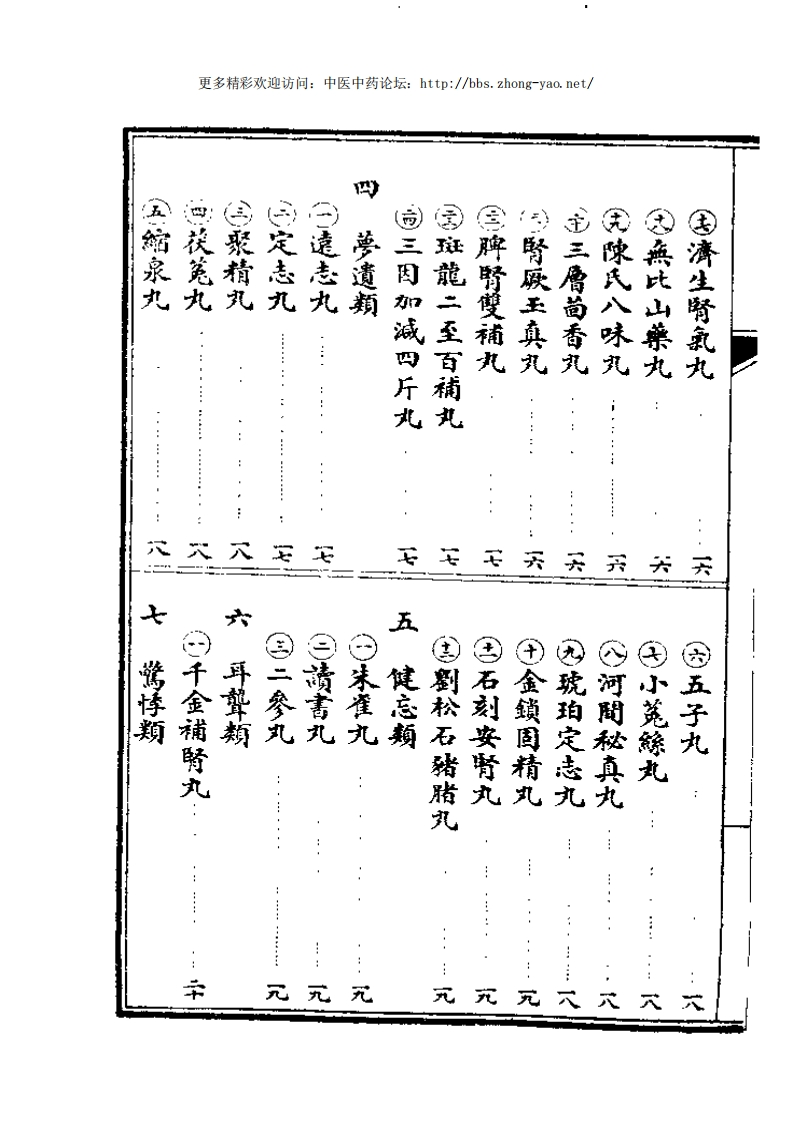 更多精彩欢迎访问：中医中药论坛：http://bbs.zhong-yao.net/
十七 濟生腎氣丸 一六
十八 無比山藥丸 一六
十九 陳氏八味丸 一六
二十 三層茴香丸 一六
腎厥玉真丸 一六
二二 脾腎雙補丸 一七
二三 斑龍二至百補丸 一七
二四 三因加減四斤丸 一七
四 夢遺類
一 遠志丸 一七
二 定志丸 一七
三 聚精丸 一八
四 茯菟丸 一八
五 縮泉丸 一八
六 五子丸 一八
七 小菟絲丸 一八
八 河間秘真丸 一八
九 琥珀定志丸 一八
十 金鎖固精丸 一九
十一 石刻安腎丸 一九
十二 劉松石豬脂丸 一九
五 健忘類
一 朱雀丸 一九
二 讀書丸 一九
三 二參丸 一九
六 耳聾類
一 千金補腎丸 二十
七 驚悸類